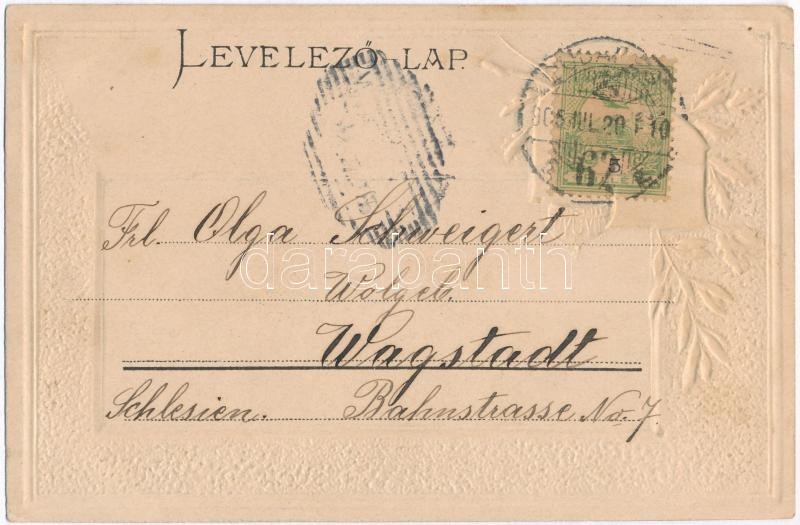 LEVELEZŐ-LAP.
905 JUL. 20
62
Frl. Olga Schweigert
darabanth
Wolgeb.
Wagstadt
Schlesien. Bahnstrasse No. 7